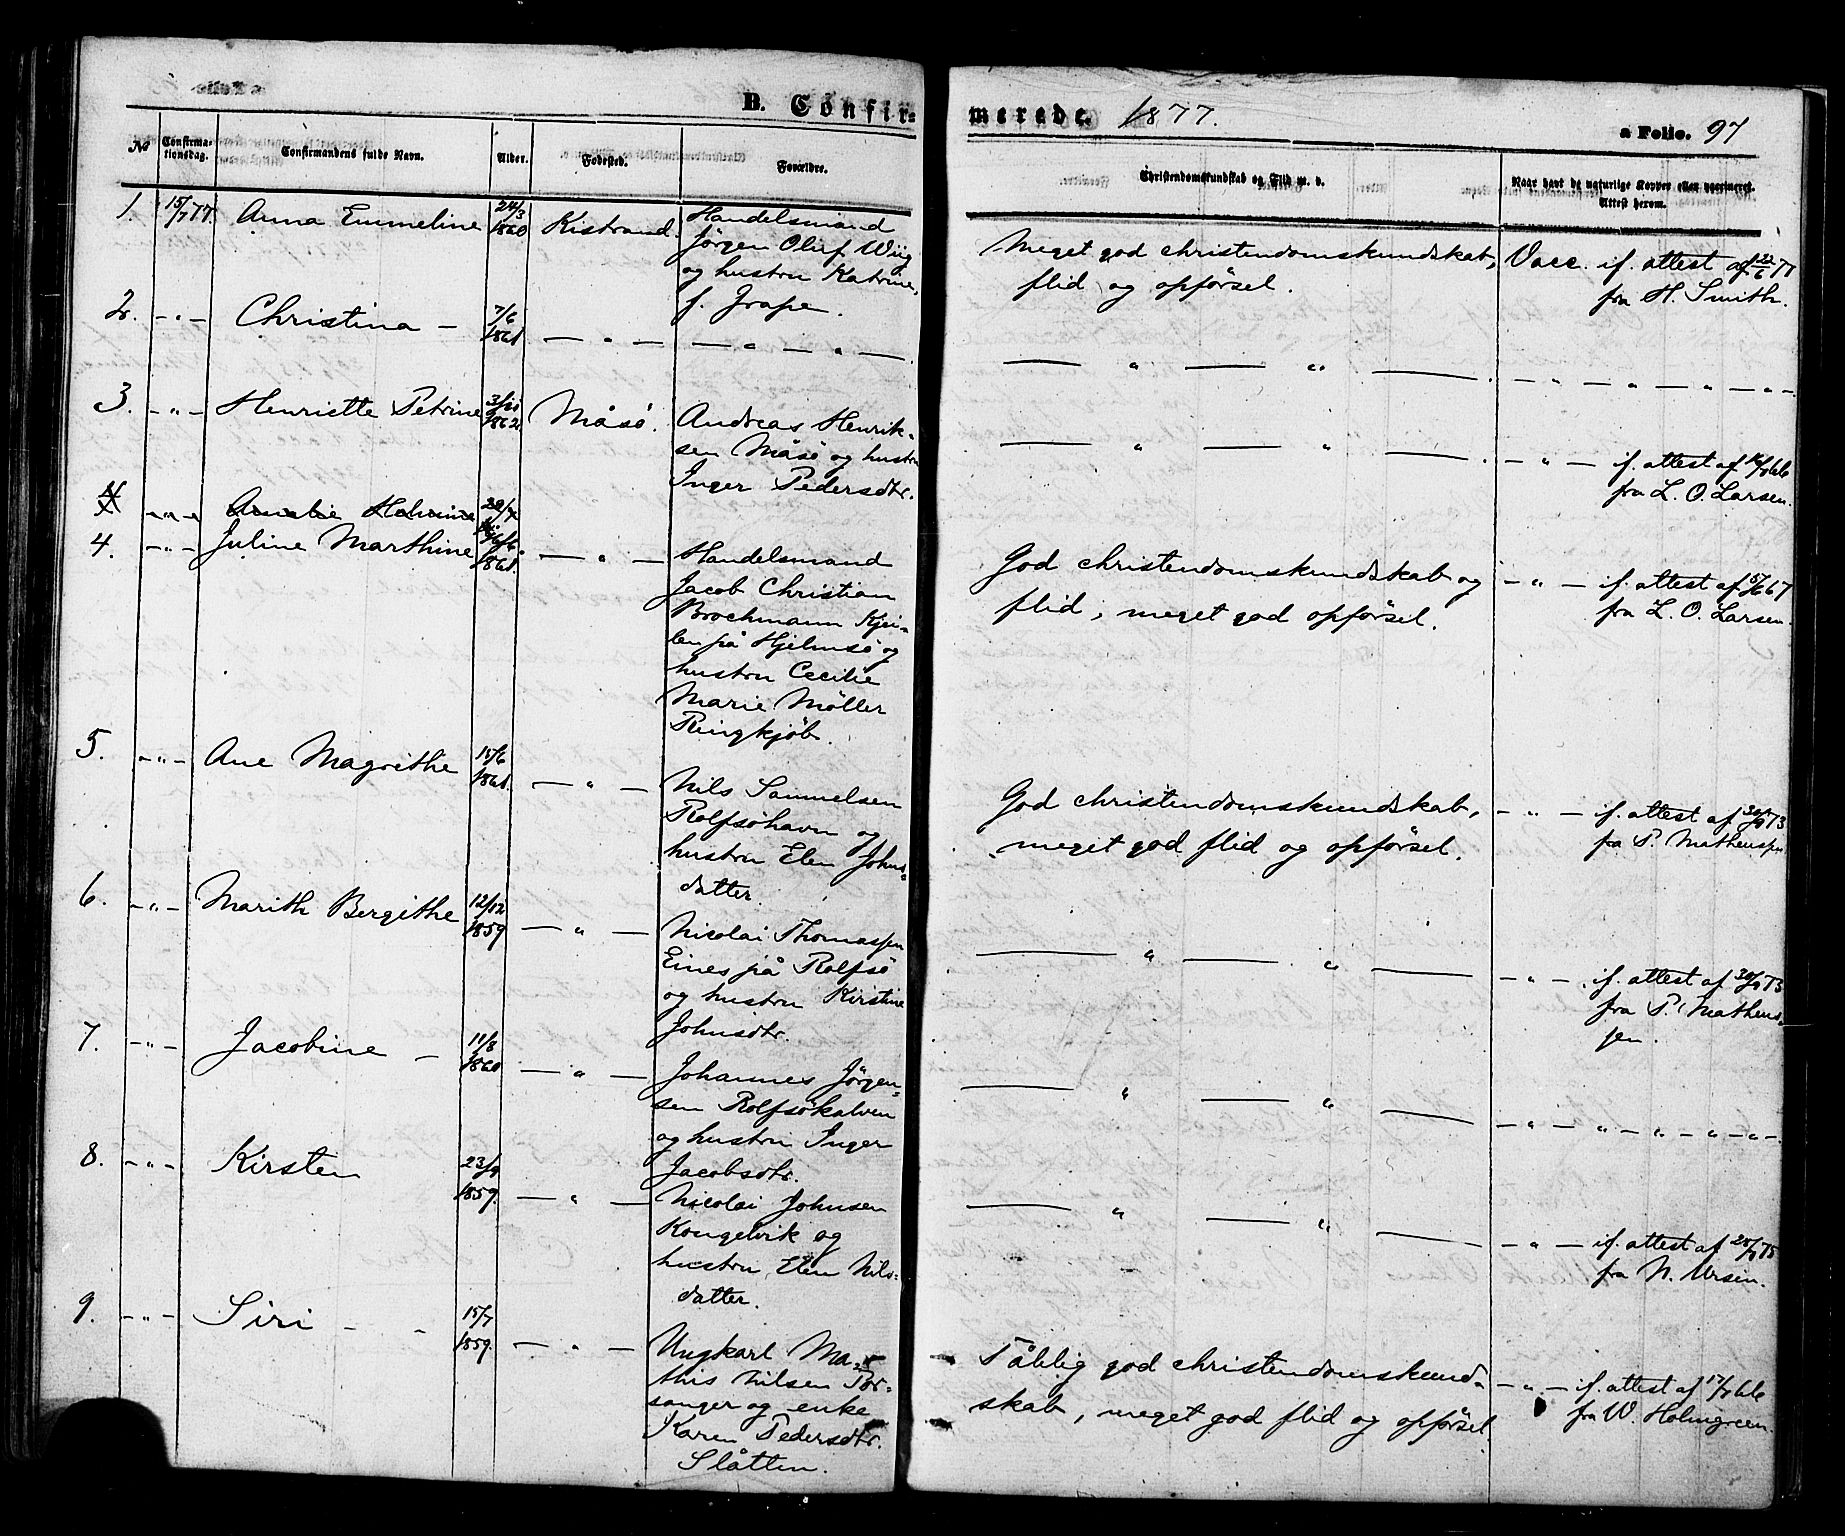 B. Confir=
merede. 1877.
a Folio. 97
No
Confirma=
tionsdag.
Confirmandens fulde Navn.
Alder.
Fødested.
Forældre.
Christendomskundskab og Flid m. v.
Naar havt de naturlige Kopper eller vaccineret.
Attest herom.
1. 15/7 77. Anna Emmeline 24/3 1860 Kistrand. Handelsmand
Jørgen Oluf Wiig
og hustru Katrine,
f. Grape.
Meget god christendomskundskab,
flid og opførsel.
Vacc. if. attest af 22/6 77
fra H. Smith.
2. - " - Christina - 7/6 1861 — " — — " — " —.
— " — " —. - " - " - " - " -
3. - " - Henriette Petrine 3/ 1862 Måsö. Andreas Henrik-
sen Måsö og hustru
Inger Pedersdtr.
— " — " —. - " - if. attest af 66
fra L. O. Larsen.
4 - " - Amalie 28/
4. - " - Juline Marthine 1861. — " — Handelsmand
Jacob Christian
Brochmann Kjei-
len på Hjelmsö og
hustru Cecilie
Marie Möller
Ringkjöb.
God christendomskundskab og
flid, meget god opförsel.
- " - if. attest af 67
fra L. O. Larsen.
5. - " - Ane Magrithe 15/6 1861. — " — Nils Samuelsen
Rolfsöhavn og
hustru Elen Johns-
datter.
God christendomskundskab,
meget god flid og opförsel.
- " - if. attest af 30/9 73
fra P. Mathenssen
6. - " - Marith Bergithe 12/12 1859 — " — Nicolai Thomassen
Eines på Rolfsö
og hustru Kirstine
Johnsdtr.
— " — " — - " -. if. attest af 30/9 73
fra P. Mathens-
sen.
7. - " - Jacobine - 11/8 1860 — " — Johannes Jörgen-
sen Rolfsökalven
og hustru Inger
Jacobsdtr.
— " — " — - " - " - " - " -.
8. - " - Kirsten 23/9 1859. — " — Nicolai Johnsen
Kongelvik og
hustru Elen Nils-
datter.
— " — " — - " - if. attest af 75
fra N. Ursin.
9. - " - Siri - - 15/7 1859. — " — Ungkarl Ma-
this Nilsen Por-
sanger og enke
Karen Pedersdtr.
Slåtten.
Tålelig god christendomskund-
skab, meget god flid og opförsel.
- " - if. attest af 17/ 66
fra W. Holmgreen.